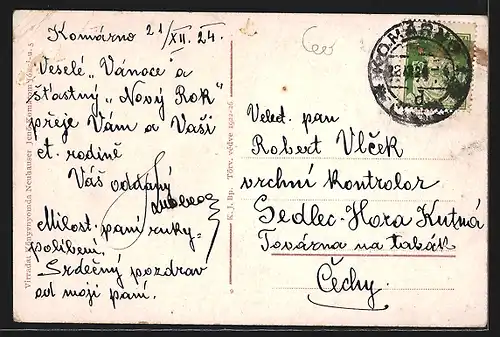 Komárno 21/XII. 24.
Veselé „Vánoce" a
šťastný „Nový Rok"
přeje Vám a Vaši
ct. rodině
Váš oddaný
Milost. paní ruky-
políbení.
Srdečný pozdrav
od mojí paní.
Virradat Könyvnyomda Neuhauser Jenő Komárom
K. J. Bp. Törv. védve 1922-26
KOMÁRNO
Veleet. pan
Robert Vlček
vrchní kontrolor
Sedlec-Hora Kutná
Továrna na tabák
Čechy.